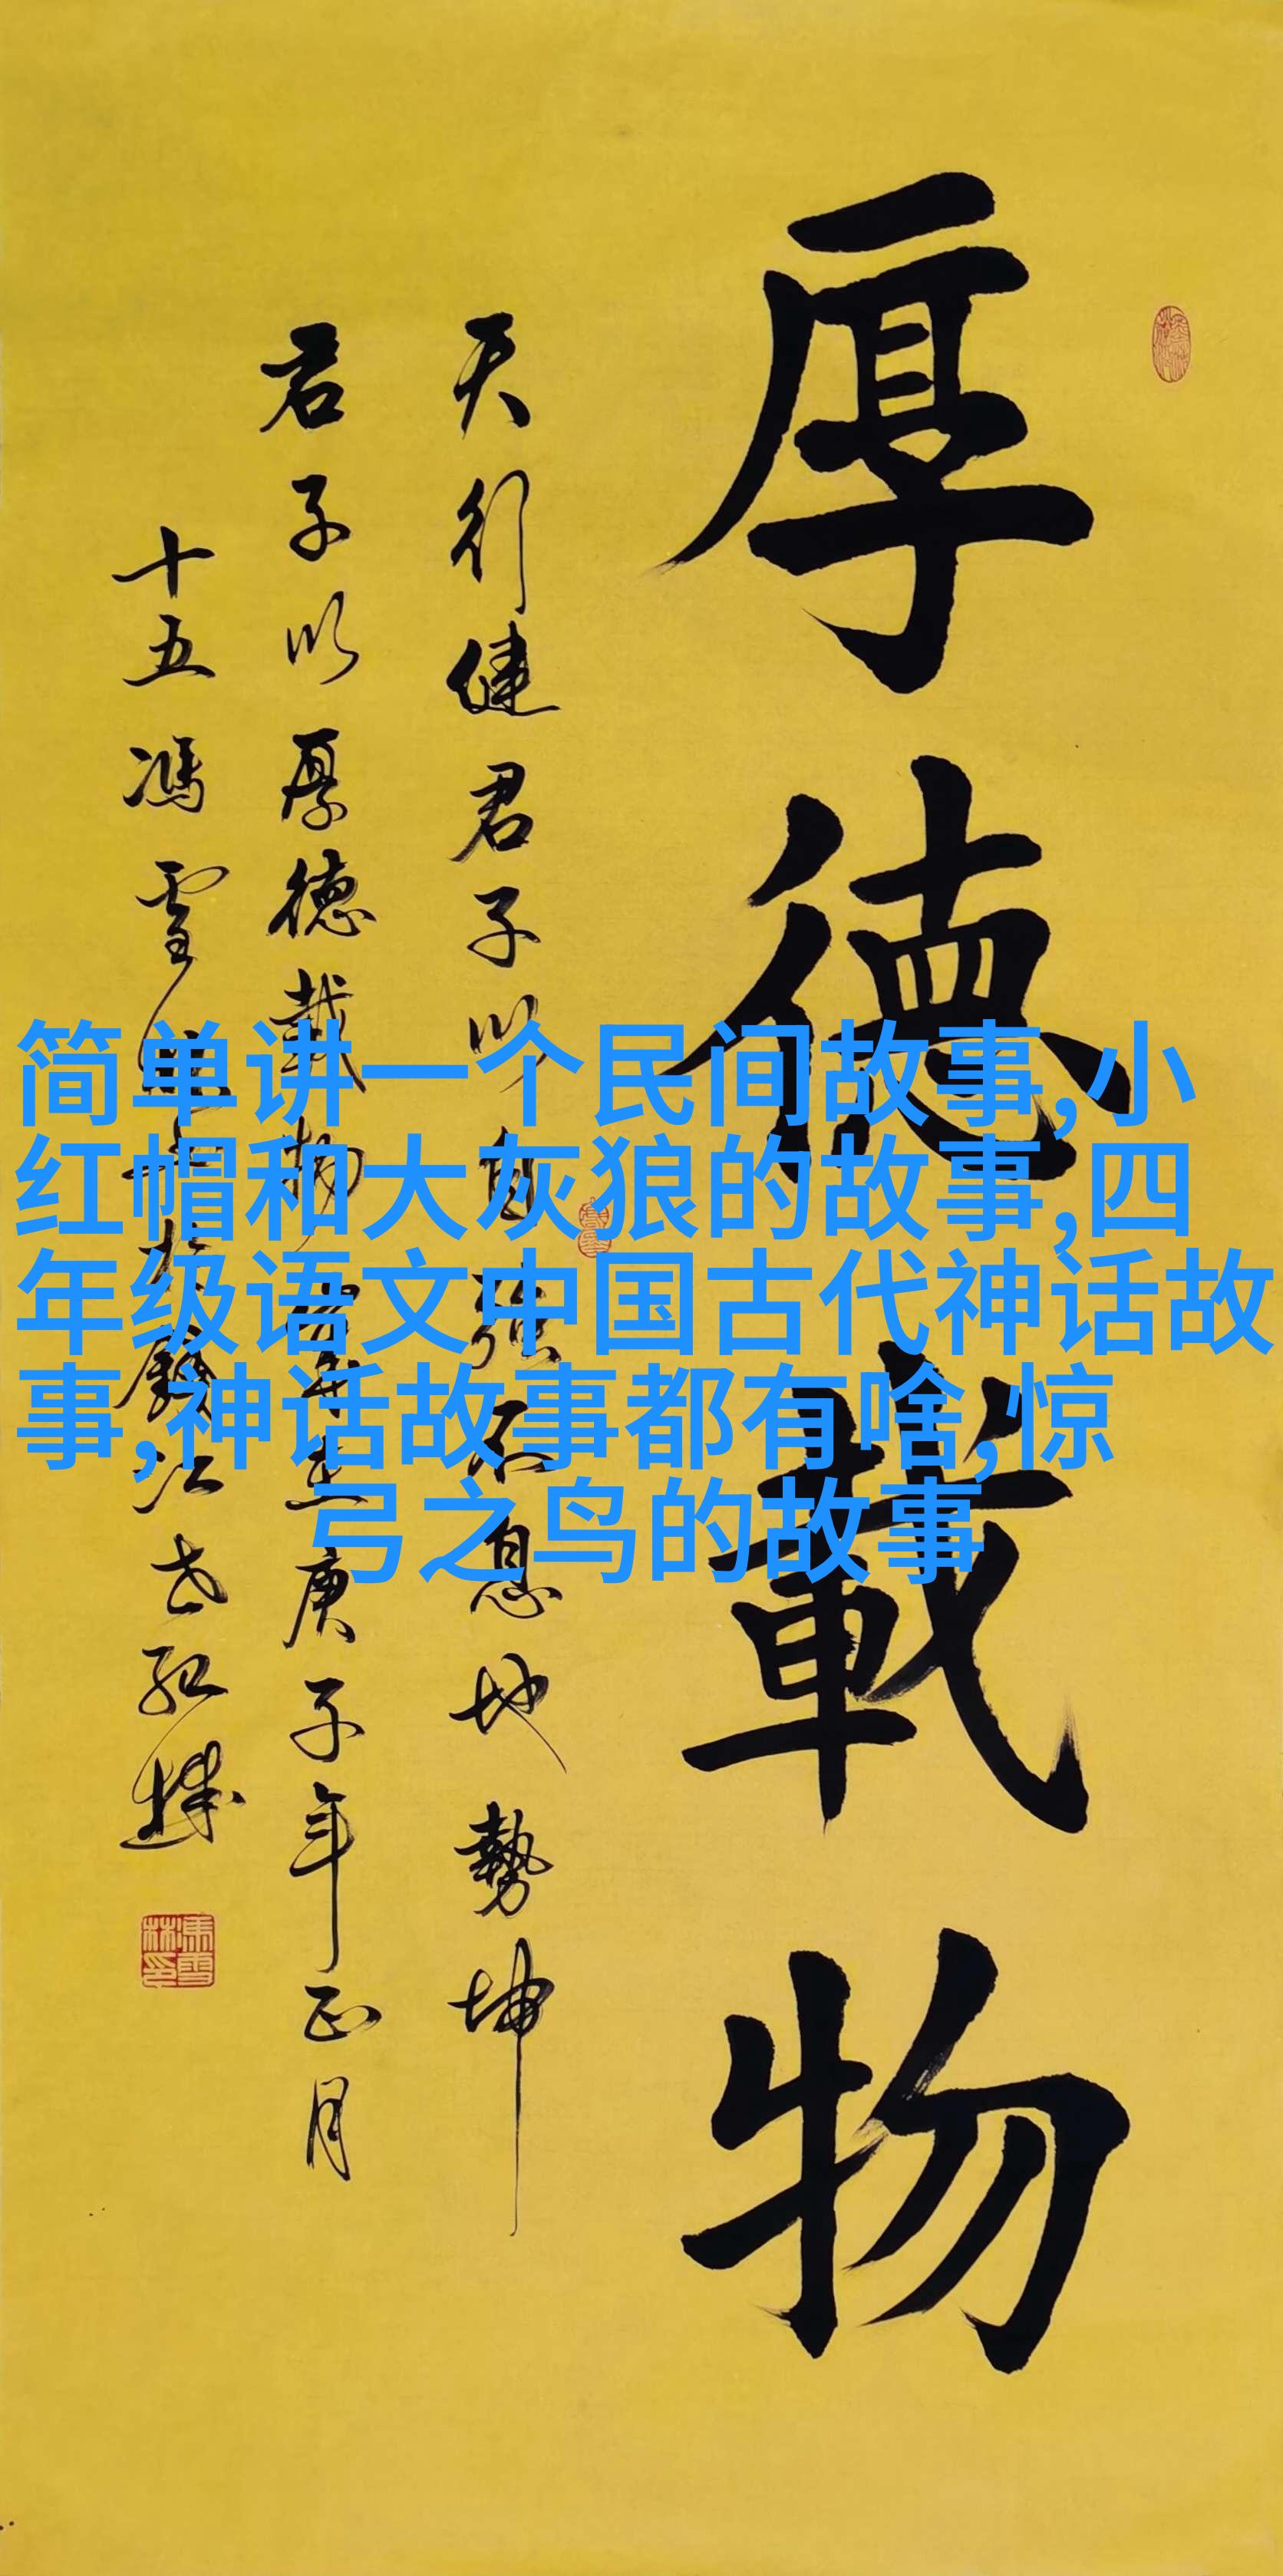 厚德載物
天行健君子以自强不息地勢坤
君子以厚德載物歲在庚子年正月
十五馮雪林
简单讲一个民间故事,小
红帽和大灰狼的故事,四
年级语文中国古代神话故
事,神话故事都有啥,惊
弓之鸟的故事